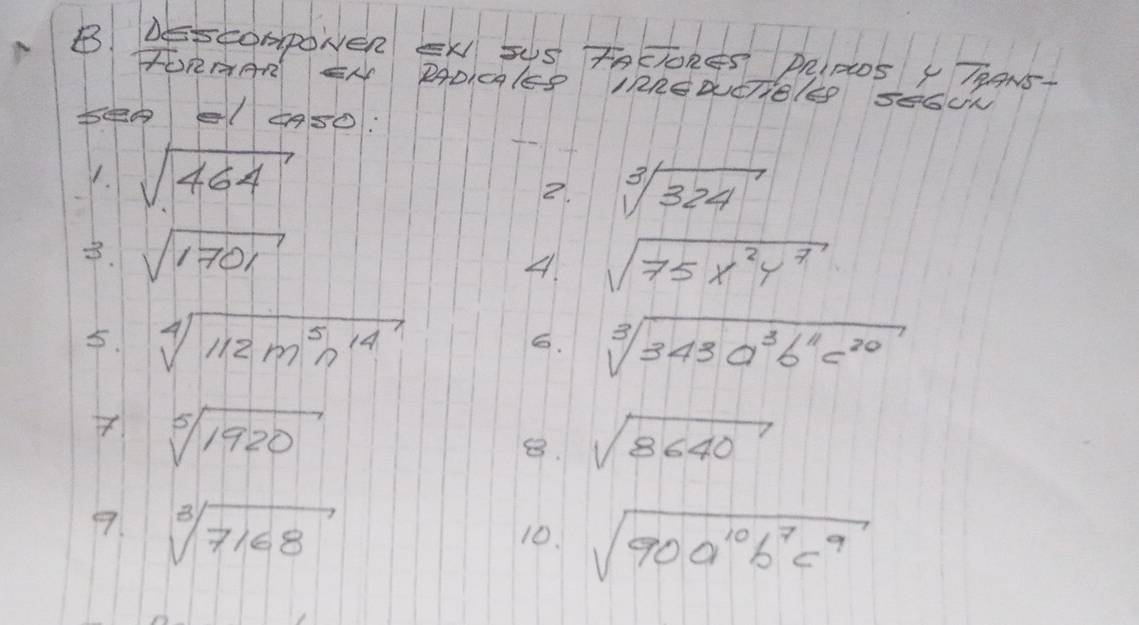 B. DESCOMPONER EN SUS FACTORES PRIMOS Y TRANS-
FORMAR EN RADICALES IRREDUCTIBLES SEGUN
SEA el CASO:
1. √464 2. ∛324
3. √1701 4. √75x²y⁷
5. ∜112m⁵n¹⁴ 6. ∛343a³b¹¹c²⁰
7. ⁵√1920 8. √8640
9. ∛7168 10. √90a¹⁰b⁷c⁹